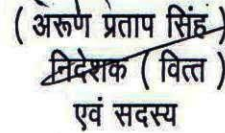 ( अरूण प्रताप सिंह )
निदेशक ( वित्त )
एवं सदस्य